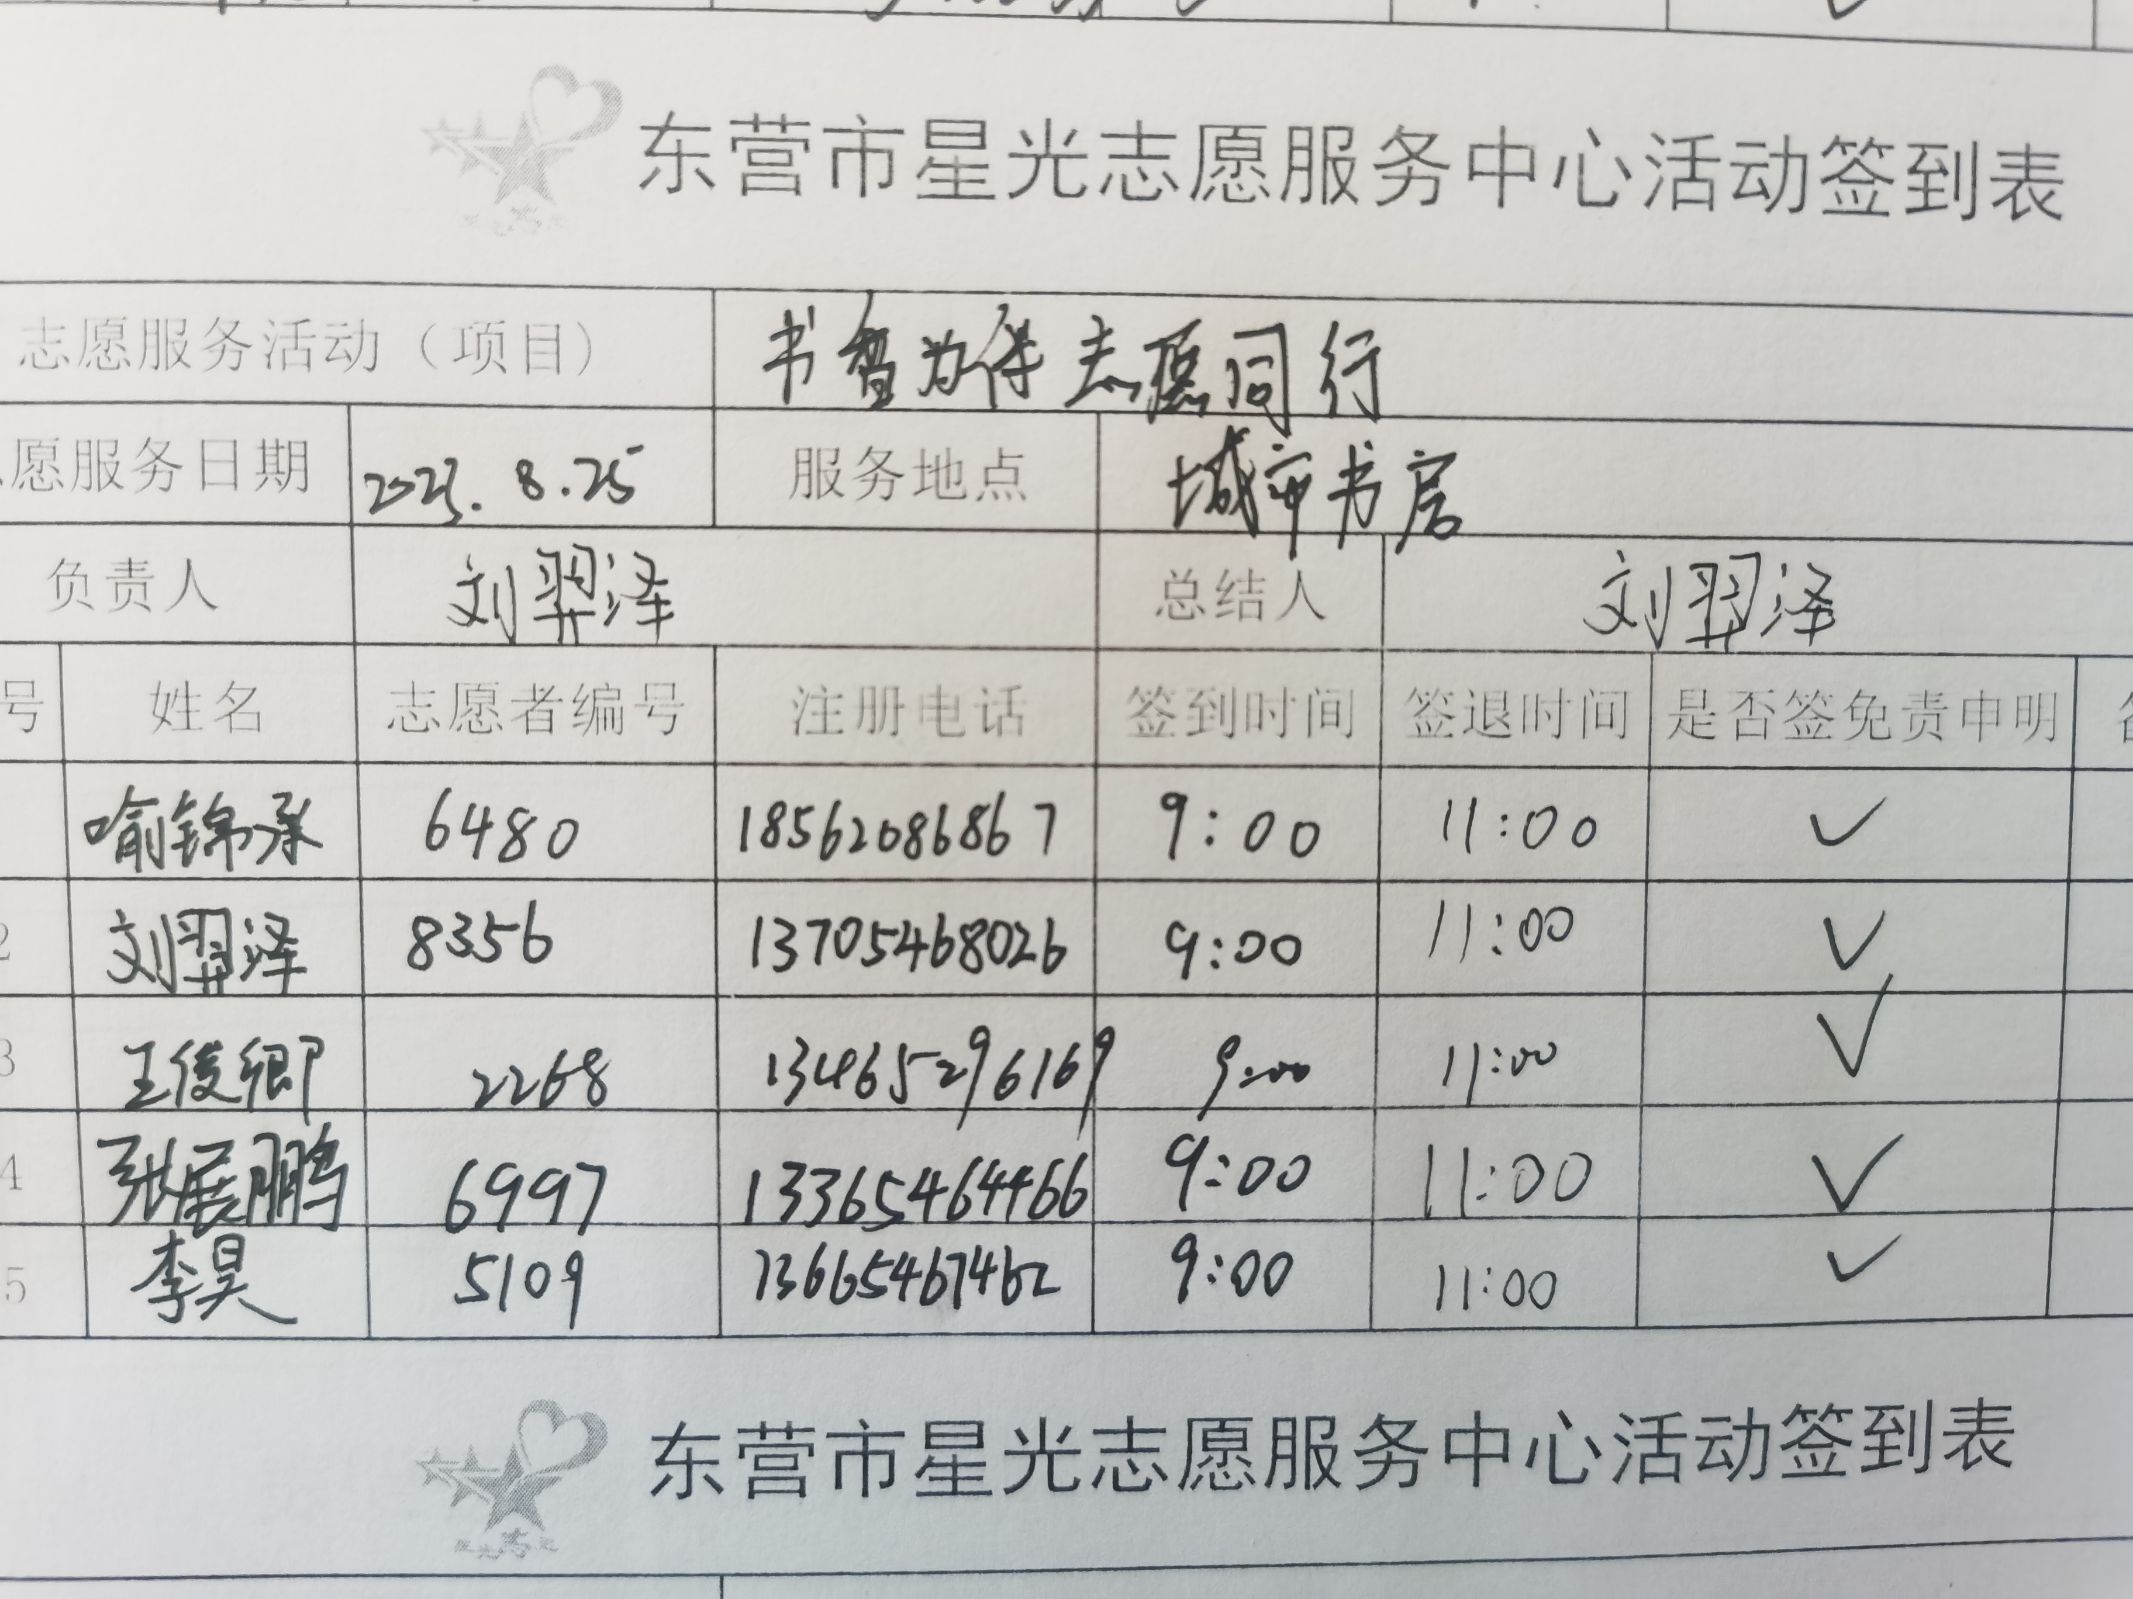 东营市星光志愿服务中心活动签到表
志愿服务活动（项目） 书香为伴 志愿同行
愿服务日期 2023.8.25 服务地点 城市书房
负责人 刘羿泽 总结人 刘羿泽
号 姓名 志愿者编号 注册电话 签到时间 签退时间 是否签免责申明
喻锦承 6480 18562086867 9:00 11:00 ✓
2 刘羿泽 8356 13705468026 9:00 11:00 ✓
3 王俊卿 2268 13465296169 9:00 11:00 ✓
4 张展鹏 6997 13365464466 9:00 11:00 ✓
5 李昊 5109 13665467462 9:00 11:00 ✓
东营市星光志愿服务中心活动签到表